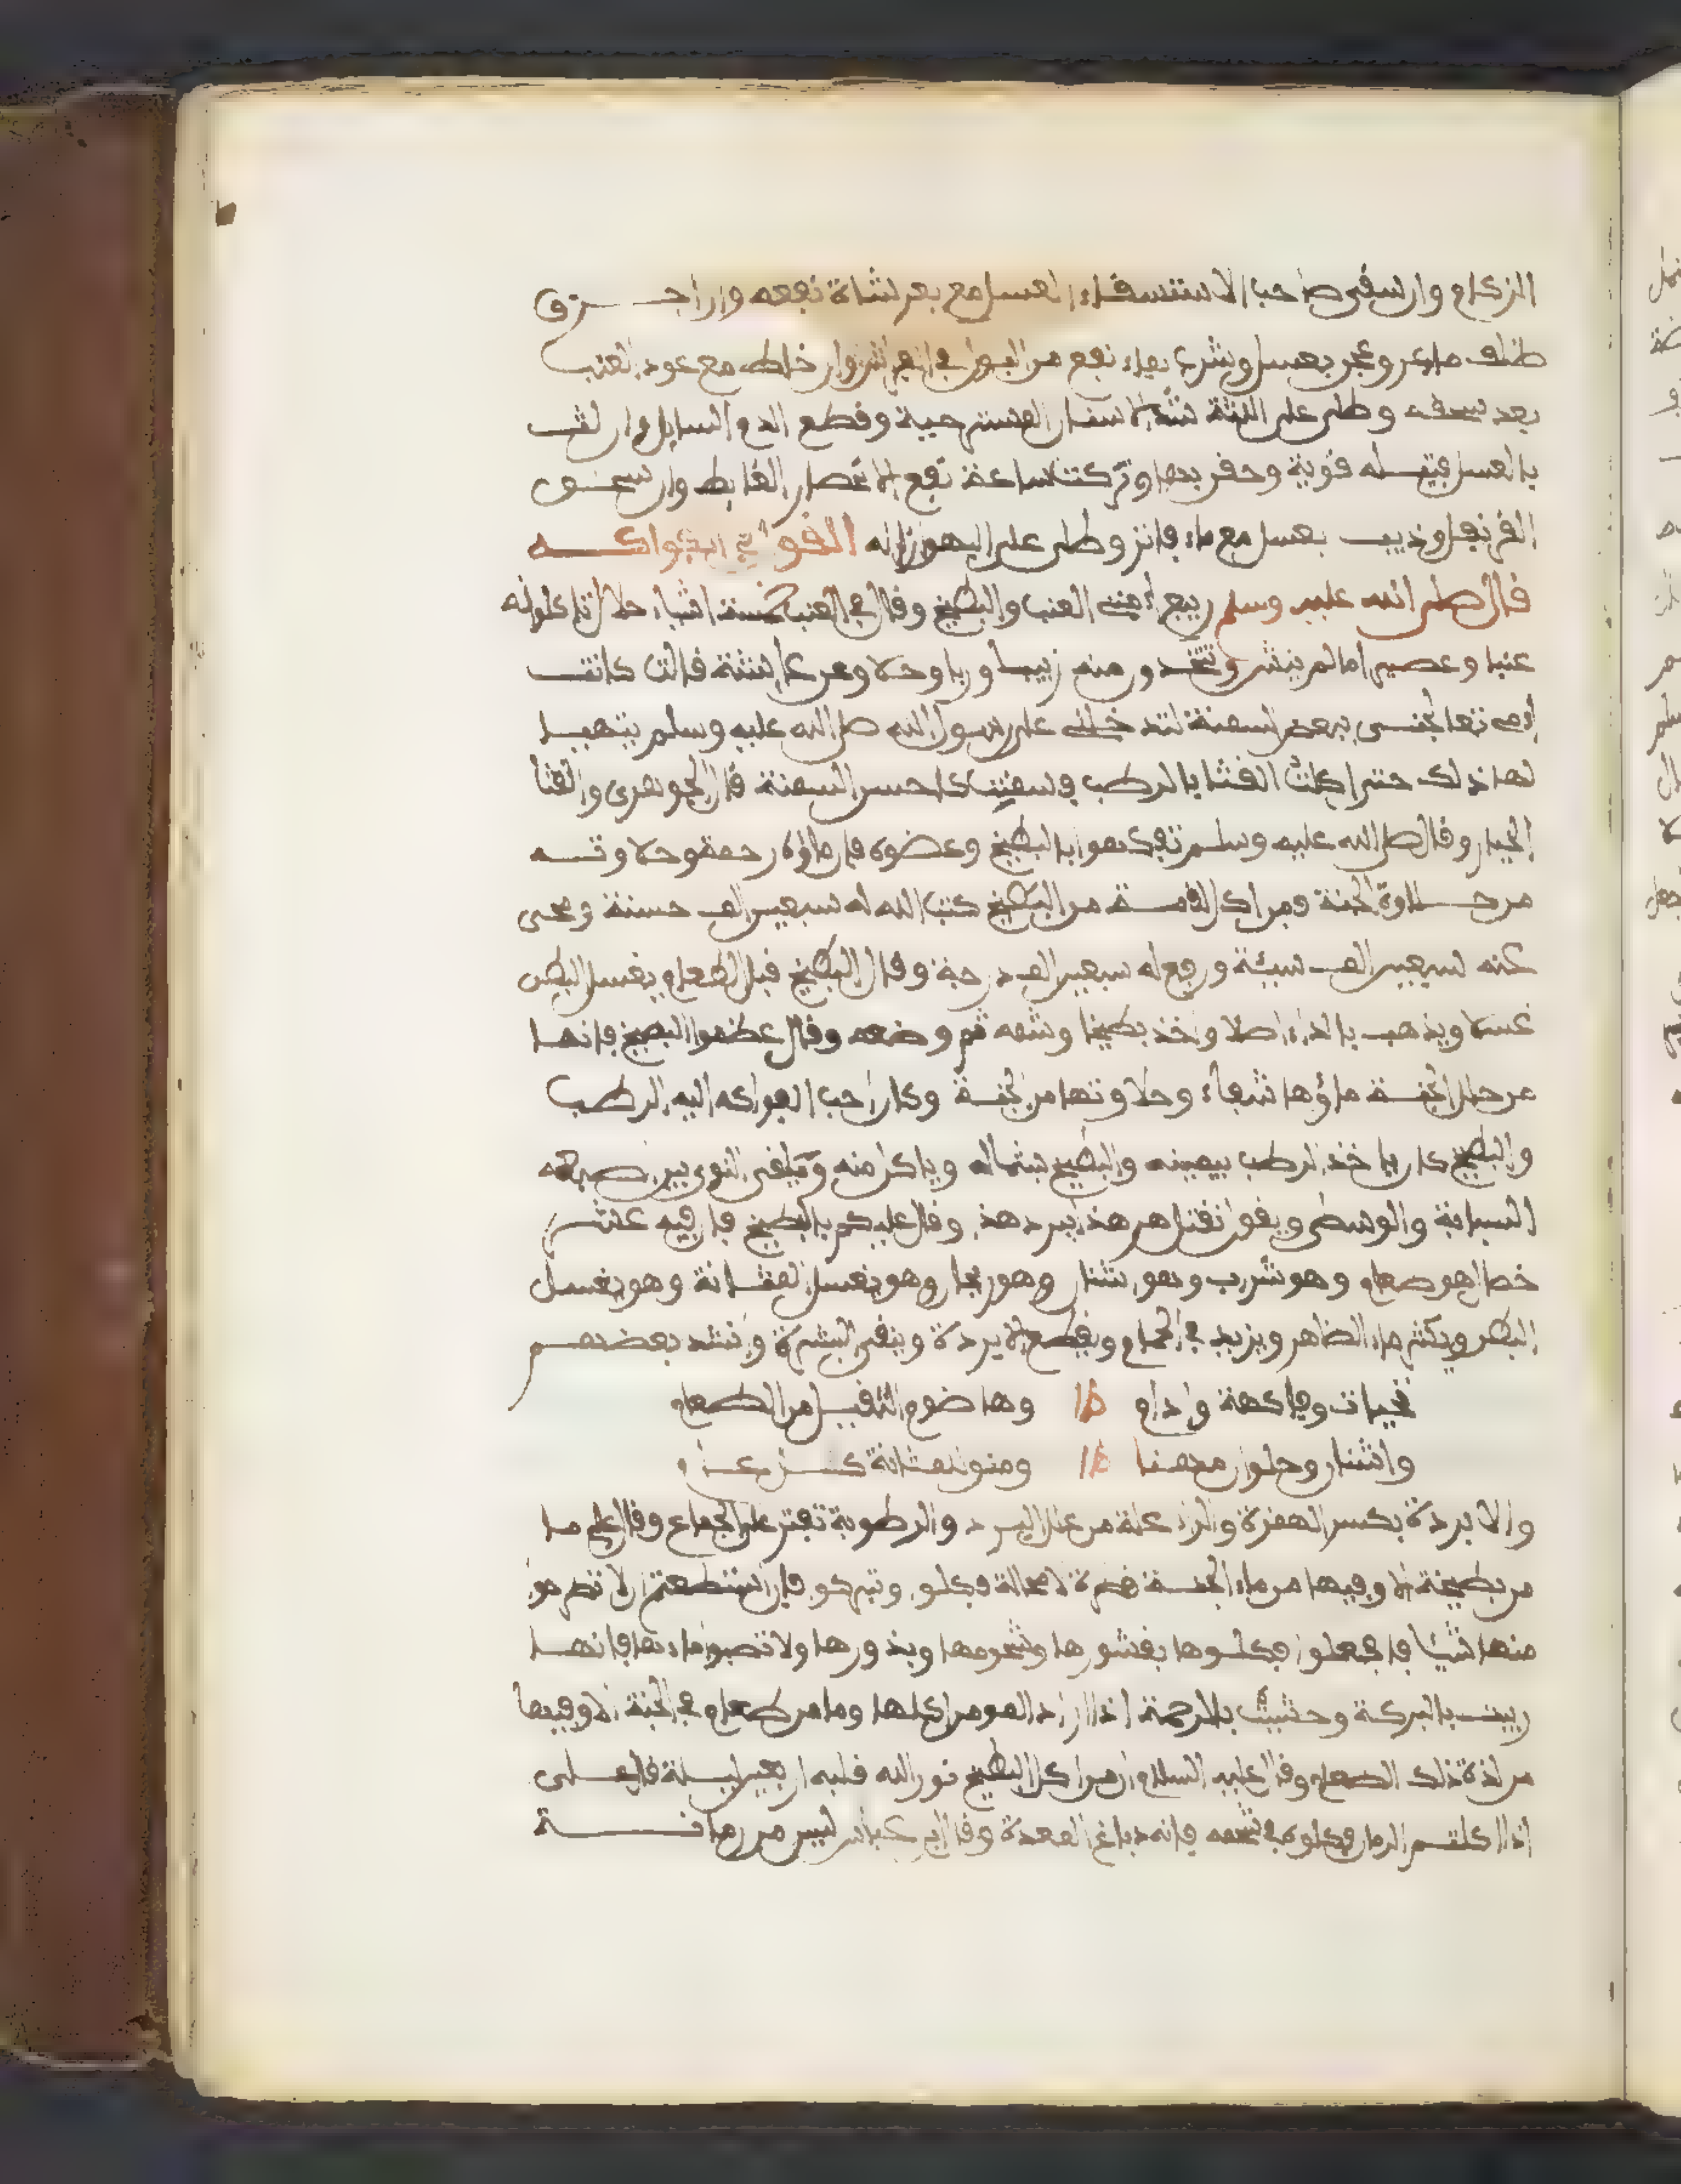 الزكام وان سقي صاحب الاستسقاء العسل مع بعر الشاة نفعه وان احرق
ظلف ماعز وعجن بعسل وشرب بماء نفع من البول في الفراش وان خلط مع عود العنب
بعد سحقه وطلي على اللثة شد الاسنان المسترخية وقطع الدم السايل وان لفت
بالعسل فتيلة قوية وحقن بها وتركت ساعة نفع الاعصار القابط وان سحق
القرنفل وذيب بعسل مع ماء فاتر وطلي على البهق ازاله القول في الفواكه
قال صلى الله عليه وسلم ربيع أمتي العنب والبطيخ وقال في العنب خمسة اشياء حلال تاكلونه
عنبا وعصيرا ما لم ينش وتتخذون منه زبيبا وربا وخلا وعن عائشة قالت كانت
أمي تعالجني ببعض السمنة لتدخلني على رسول الله صلى الله عليه وسلم يتهيا
لها ذلك حتى اكلت القثا بالرطب فسمنت كاحسن السمنة قال الجوهري والقثا
الخيار وقال صلى الله عليه وسلم تفكهوا بالبطيخ وعضوه فان ماؤه رحمة وحلاوته
من حلاوة الجنة ومن اكل لقمة من البطيخ كتب الله له سبعين الف حسنة ومحى
عنه سبعين الف سيئة ورفع له سبعين الف درجة وقال البطيخ قبل الطعام يغسل البطن
غسلا ويذهب بالداء اصلا واخذ بطيخا وشمه ثم وضعه وقال عظموا البطيخ فانها
من حلل الجنة ماؤها شفاء وحلاوتها من الجنة وكان احب الفواكه اليه الرطب
والبطيخ كان ياخذ الرطب بيمينه والبطيخ بشماله وياكل منه ويلقي النوى بين اصبعه
السبابة والوسطى ويقول نقتل حر هذا ببرد هذا وقال عليكم بالبطيخ فان فيه عشر
خصال هو طعام وهو شراب وهو اشنان وهو ريحان وهو يغسل المثانة وهو يغسل
البطن ويكثر ماء الظهر ويزيد في الجماع ويقطع الابردة وينقي البشرة وانشد بعضهم
تحيات وفاكهة وادام وهاضوم الثقيل من الطعام
واشنان وحلوان مهنا ومنق للمثانة
والابردة بكسر الهمزة والراء علة من علل البرد والرطوبة تفتر على الجماع وقال علي ما
من بطيخة الا وفيها من ماء الجنة قطرة لا محالة فكلوا وتبركوا فان استطعتم ان لا تضرموا
منها شيئا فافعلوا فكلوها بقشورها وشحومها وبذورها ولا تصبوا ماءها فانها
ربيت بالبركة وحثيثت بالرحمة اذا اراد المومن اكلها وما من طعام في الجنة الا وفيها
من لذة ذلك الطعام وقال عليه السلام من اكل البطيخ نور الله قلبه اربعين ليلة قال علي
اذا اكلتم الرمان فكلوه في شحمه فانه دباغ المعدة وقال ابن عباس ليس من رمانة